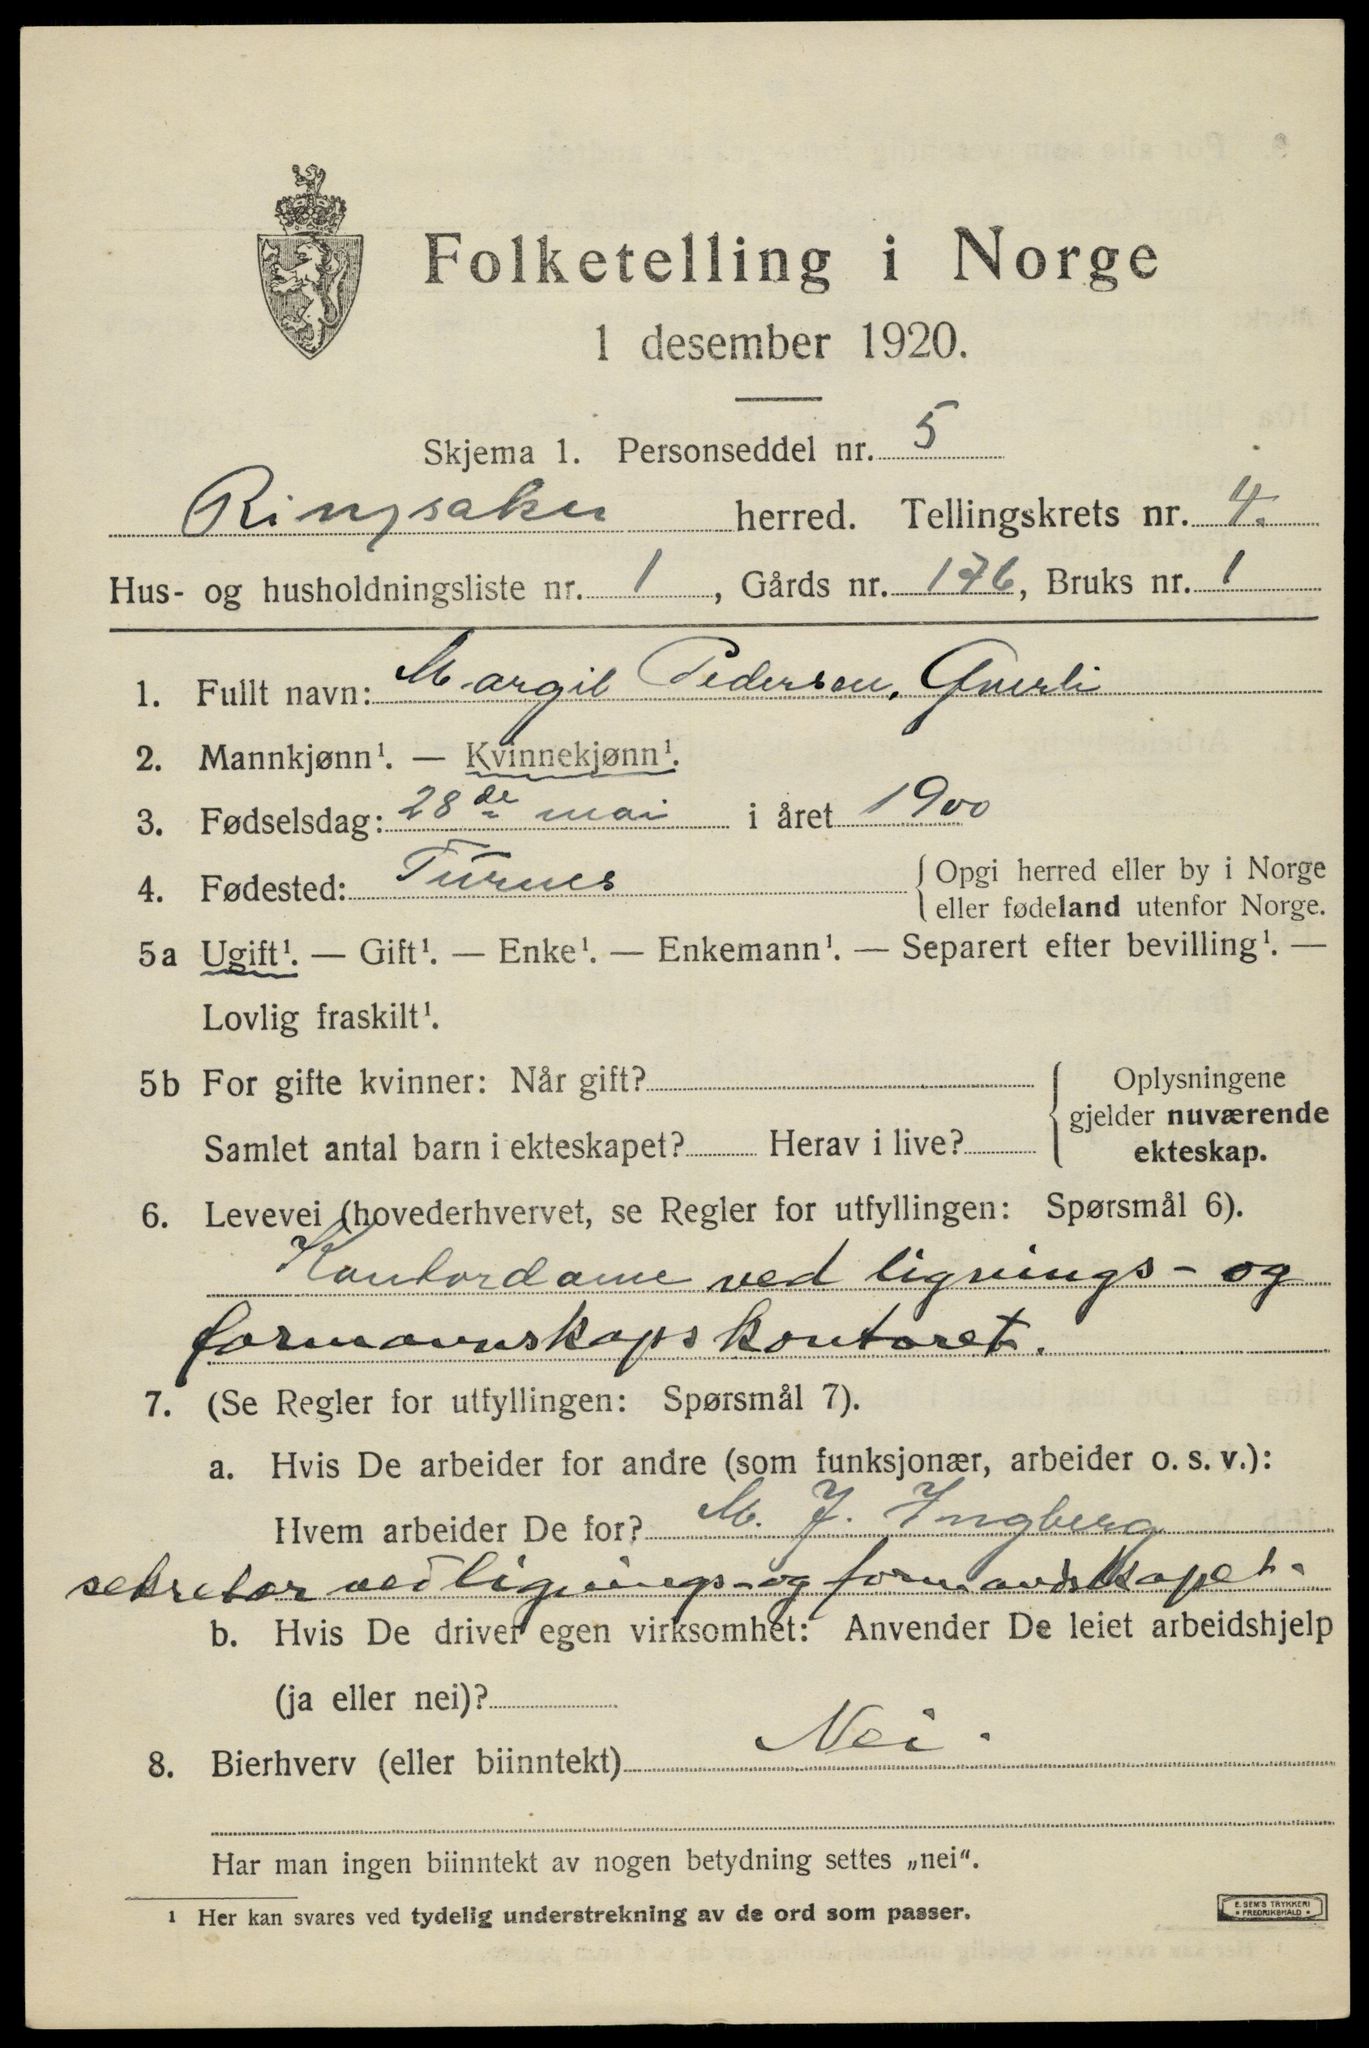 Folketelling i Norge
1 desember 1920.
Skjema 1. Personseddel nr. 5
Ringsaker herred. Tellingskrets nr. 4.
Hus- og husholdningsliste nr. 1, Gårds nr. 176, Bruks nr. 1
1. Fullt navn: Margit Pedersen, Gverli
2. Mannkjønn¹. — Kvinnekjønn¹.
3. Fødselsdag: 28de mai i året 1900
4. Fødested: Furnes { Opgi herred eller by i Norge
eller fødeland utenfor Norge.
5a Ugift¹. — Gift¹. — Enke¹. — Enkemann¹. — Separert efter bevilling¹. —
Lovlig fraskilt¹.
5b For gifte kvinner: Når gift? { Oplysningene
gjelder nuværende
Samlet antal barn i ekteskapet? Herav i live? ekteskap.
6. Levevei (hovederhvervet, se Regler for utfyllingen: Spørsmål 6).
Kontordame ved lignings- og
formannskapskontoret.
7. (Se Regler for utfyllingen: Spørsmål 7).
a. Hvis De arbeider for andre (som funksjonær, arbeider o. s. v.):
Hvem arbeider De for? M. J. Yngberg
sekretær ved lignings- og formandskapet.
b. Hvis De driver egen virksomhet: Anvender De leiet arbeidshjelp
(ja eller nei)?
8. Bierhverv (eller biinntekt) Nei.
Har man ingen biinntekt av nogen betydning settes „nei“.
¹ Her kan svares ved tydelig understrekning av de ord som passer.
E. SEM'S TRYKKERI
FREDRIKSHALD